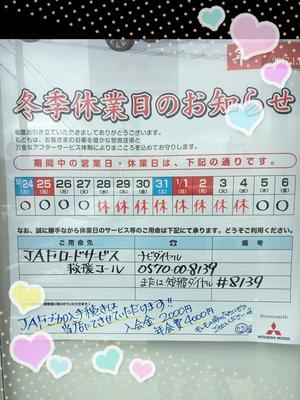 冬季休業日のお知らせ
毎度お引き立ていただきましてありがとうございます。
私どもは、お客さまのお車を確かな整備技術と
万全なアフターサービス体制によりまごころを込めてお守りします。
期間中の営業日・休業日は、下記の通りです。
24 25 26 27 28 29 30 31 1/1 2 3 4 5 6
(土) (日) (月) (火) (水) (木) (金) (土) (日) (月) (火) (水) (木) (金)
○ ○ ○ ○ 休 休 休 休 休 休 休 休 ○ ○
なお、誠に勝手ながら休業日のサービス等のご用命は下記にて承ります。どうぞご利用ください。
ご用命先 ☎ 備考
JAFロードサービス ナビダイヤル
救援コール 0570-00-8139
または 短縮ダイヤル #8139
JAFご加入手続きは
当店にてさせていただけます!!
入会金 2000円
年会費 4000円
Drive@earth
MITSUBISHI MOTORS